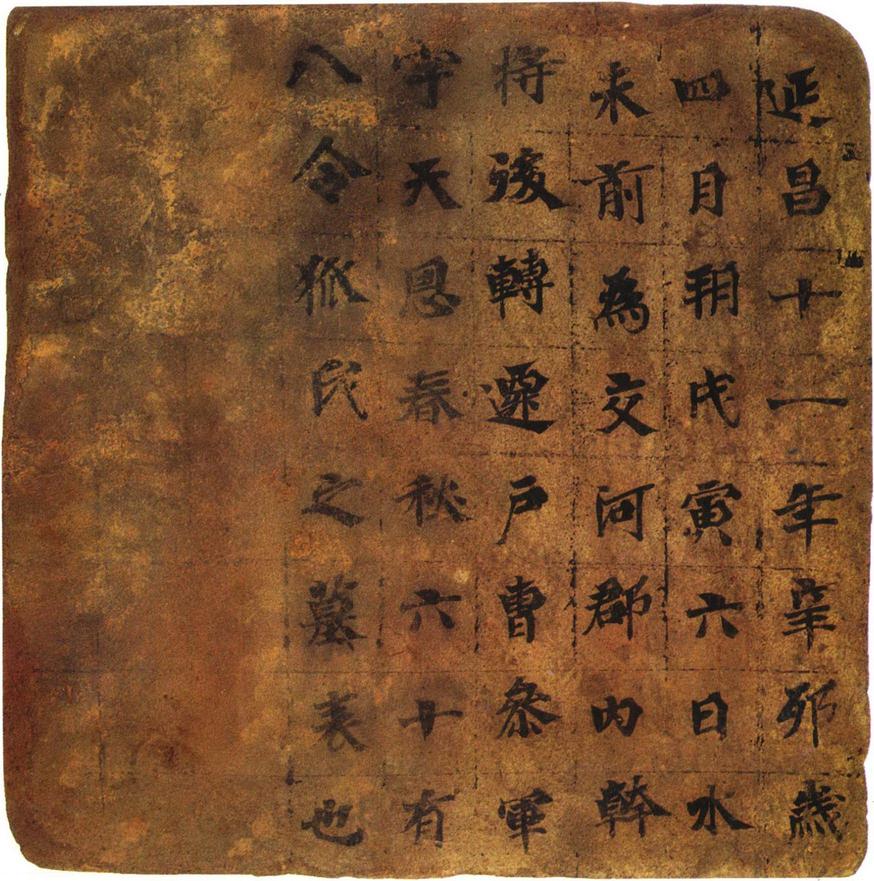 延昌十一年辛卯歲
四月朔戊寅六日水
未前為交河郡內幹
將後轉遷戶曹參軍
字天恩春秋六十有
八令狐氏之墓表也